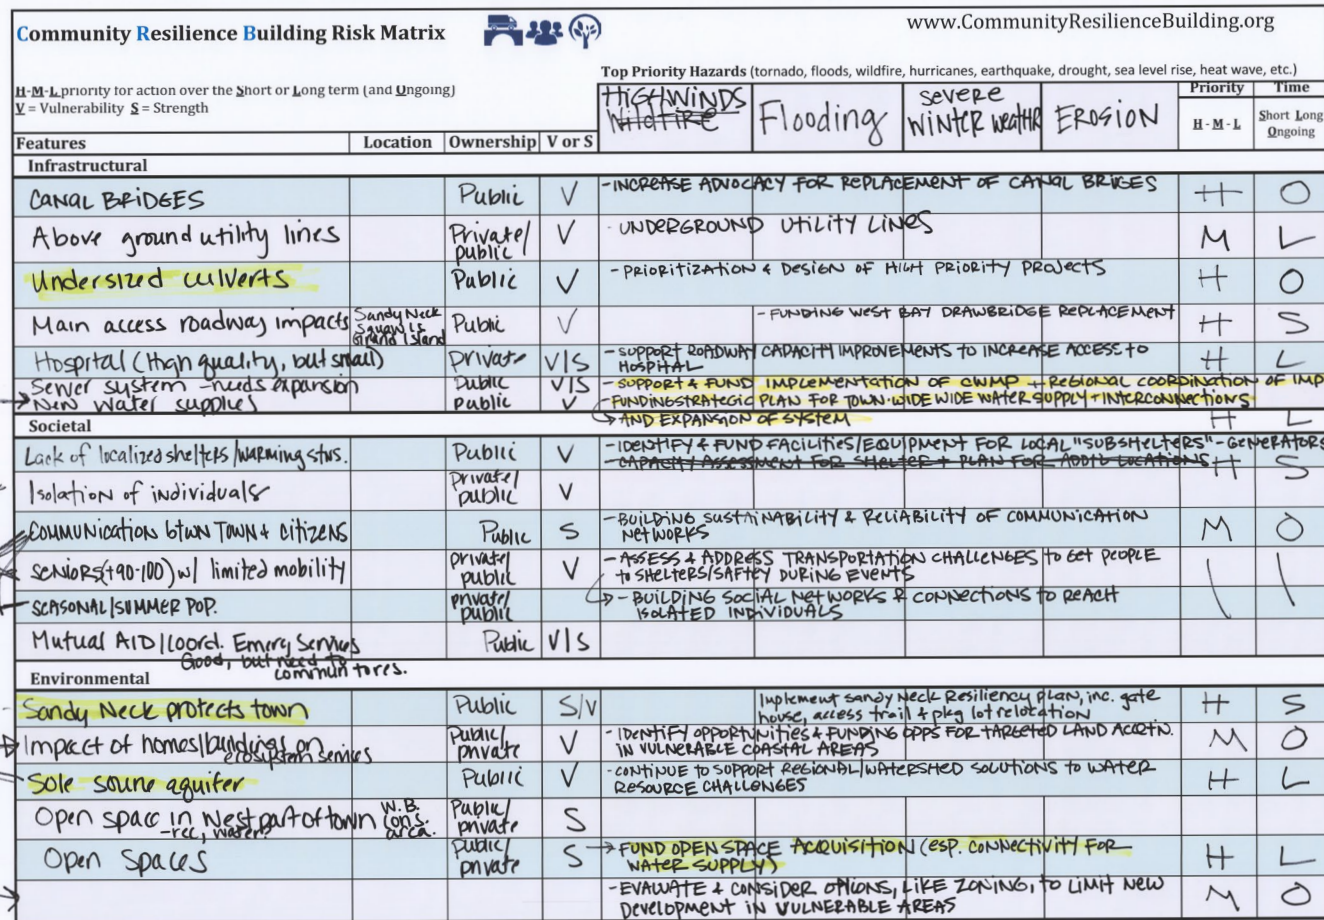 Community Resilience Building Risk Matrix
www.CommunityResilienceBuilding.org
Top Priority Hazards (tornado, floods, wildfire, hurricanes, earthquake, drought, sea level rise, heat wave, etc.)
H-M-L priority for action over the Short or Long term (and Ongoing)
V = Vulnerability S = Strength
HIGH WINDS Wildfire Flooding SEVERE WINTER WEATHR EROSION
Priority Time
H - M - L Short Long Ongoing
Features Location Ownership V or S
Infrastructural
CANAL BRIDGES Public V -INCREASE ADVOCACY FOR REPLACEMENT OF CANAL BRIGES H O
Above ground utility lines Private/ public V - UNDERGROUND UTILITY LINES M L
Undersized culverts Public V - PRIORITIZATION & DESIGN OF HIGH PRIORITY PROJECTS H O
Main access roadway impacts Sandy Neck Squaw Is Grand Island Public V - FUNDING WEST BAY DRAWBRIDGE REPLACEMENT H S
Hospital (High quality, but small) Private V/S - SUPPORT ROADWAY CAPACITY IMPROVEMENTS TO INCREASE ACCESS TO
HOSPITAL H L
Sewer system - needs expansion Public V/S - SUPPORT & FUND IMPLEMENTATION OF CWMP + REGIONAL COORDINATION OF IMP
New water supplies public V - FUNDING STRATEGIC PLAN FOR TOWN-WIDE WIDE WATER SUPPLY + INTERCONNECTIONS
AND EXPANSION OF SYSTEM H L
Societal
Lack of localized shelters/warming stns. Public V - IDENTIFY & FUND FACILITIES/EQUIPMENT FOR LOCAL "SUBSHELTERS" - GENERATORS
- CAPACITY ASSESSMENT FOR SHELTER + PLAN FOR ADD'L LOCATIONS H S
Isolation of individuals Private/ public V
COMMUNICATION btwn TOWN & citizens Public S - BUILDING SUSTAINABILITY & RELIABILITY OF COMMUNICATION
NETWORKS M O
SENIORS (+90-100) w/ limited mobility private/ public V - ASSESS & ADDRESS TRANSPORTATION CHALLENGES TO GET PEOPLE
TO SHELTERS/SAFTEY DURING EVENTS
SEASONAL/SUMMER POP. private/ public - BUILDING SOCIAL NETWORKS & CONNECTIONS TO REACH
ISOLATED INDIVIDUALS
Mutual AID/Coord. Emerg Services Public V/S
Good, but need to
commun
Environmental
Sandy Neck protects town Public S/V Implement sandy Neck Resiliency plan, inc. gate
house, access trail & pkg lot relocation H S
Impact of homes/buildings on Public/ private V - IDENTIFY OPPORTUNITIES & FUNDING OPPS FOR TARGETED LAND ACQTN.
ecosystem services IN VULNERABLE COASTAL AREAS M O
Sole source aquifer Public V - CONTINUE TO SUPPORT REGIONAL/WATERSHED SOLUTIONS TO WATER
RESOURCE CHALLENGES H L
Open space in West part of town W.B. Cons. area. Public/ private S
-rec, water?
Open Spaces Public/ private S FUND OPEN SPACE ACQUISITION (ESP. CONNECTIVITY FOR
WATER SUPPLY) H L
- EVALUATE & CONSIDER OPTIONS, LIKE ZONING, TO LIMIT NEW
DEVELOPMENT IN VULNERABLE AREAS M O